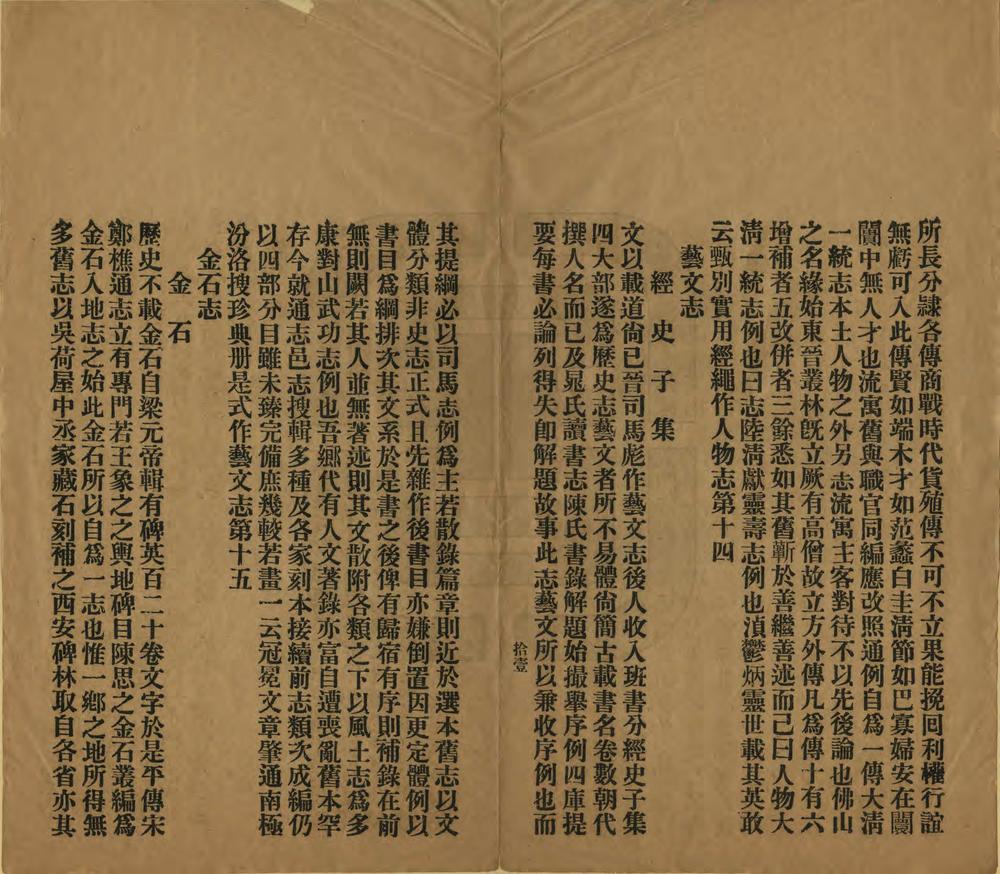 所長分隷各傳商戰時代貨殖傳不可不立果能挽囘利權行誼
無虧可入此傳賢如端木才如范蠡白圭淸節如巴寡婦安在闤
闠中無人才也流寓舊與職官同編應改照通例自爲一傳大淸
一統志本土人物之外另志流寓主客對待不以先後論也佛山
之名緣始東晉叢林旣立厥有高僧故立方外傳凡爲傳十有六
增補者五改併者三餘悉如其舊蘄於善繼善述而已曰人物大
淸一統志例也曰志陸淸獻靈壽志例也湞鬱炳靈世載其英敢
云甄別實用經繩作人物志第十四
藝文志
經史子集
文以載道尙已晉司馬彪作藝文志後人收入班書分經史子集
四大部遂爲歷史志藝文者所不易體尙簡古載書名卷數朝代
撰人名而已及晁氏讀書志陳氏書錄解題始撮舉序例四庫提
要每書必論列得失卽解題故事此志藝文所以兼收序例也而
拾壹
其提綱必以司馬志例爲主若散錄篇章則近於選本舊志以文
體分類非史志正式且先雜作後書目亦嫌倒置因更定體例以
書目爲綱排次其文系於是書之後俾有歸宿有序則補錄在前
無則闕若其人並無著述則其文散附各類之下以風土志爲多
康對山武功志例也吾鄕代有人文著錄亦富自遭喪亂舊本罕
存今就通志邑志搜輯多種及各家刻本接續前志類次成編仍
以四部分目雖未臻完備庶幾較若畫一云冠冕文章肇通南極
汾洛搜珍典册是式作藝文志第十五
金石志
金石
歷史不載金石自梁元帝輯有碑英百二十卷文字於是平傳宋
鄭樵通志立有專門若王象之之輿地碑目陳思之金石叢編爲
金石入地志之始此金石所以自爲一志也惟一鄕之地所得無
多舊志以吳荷屋中丞家藏石刻補之西安碑林取自各省亦其